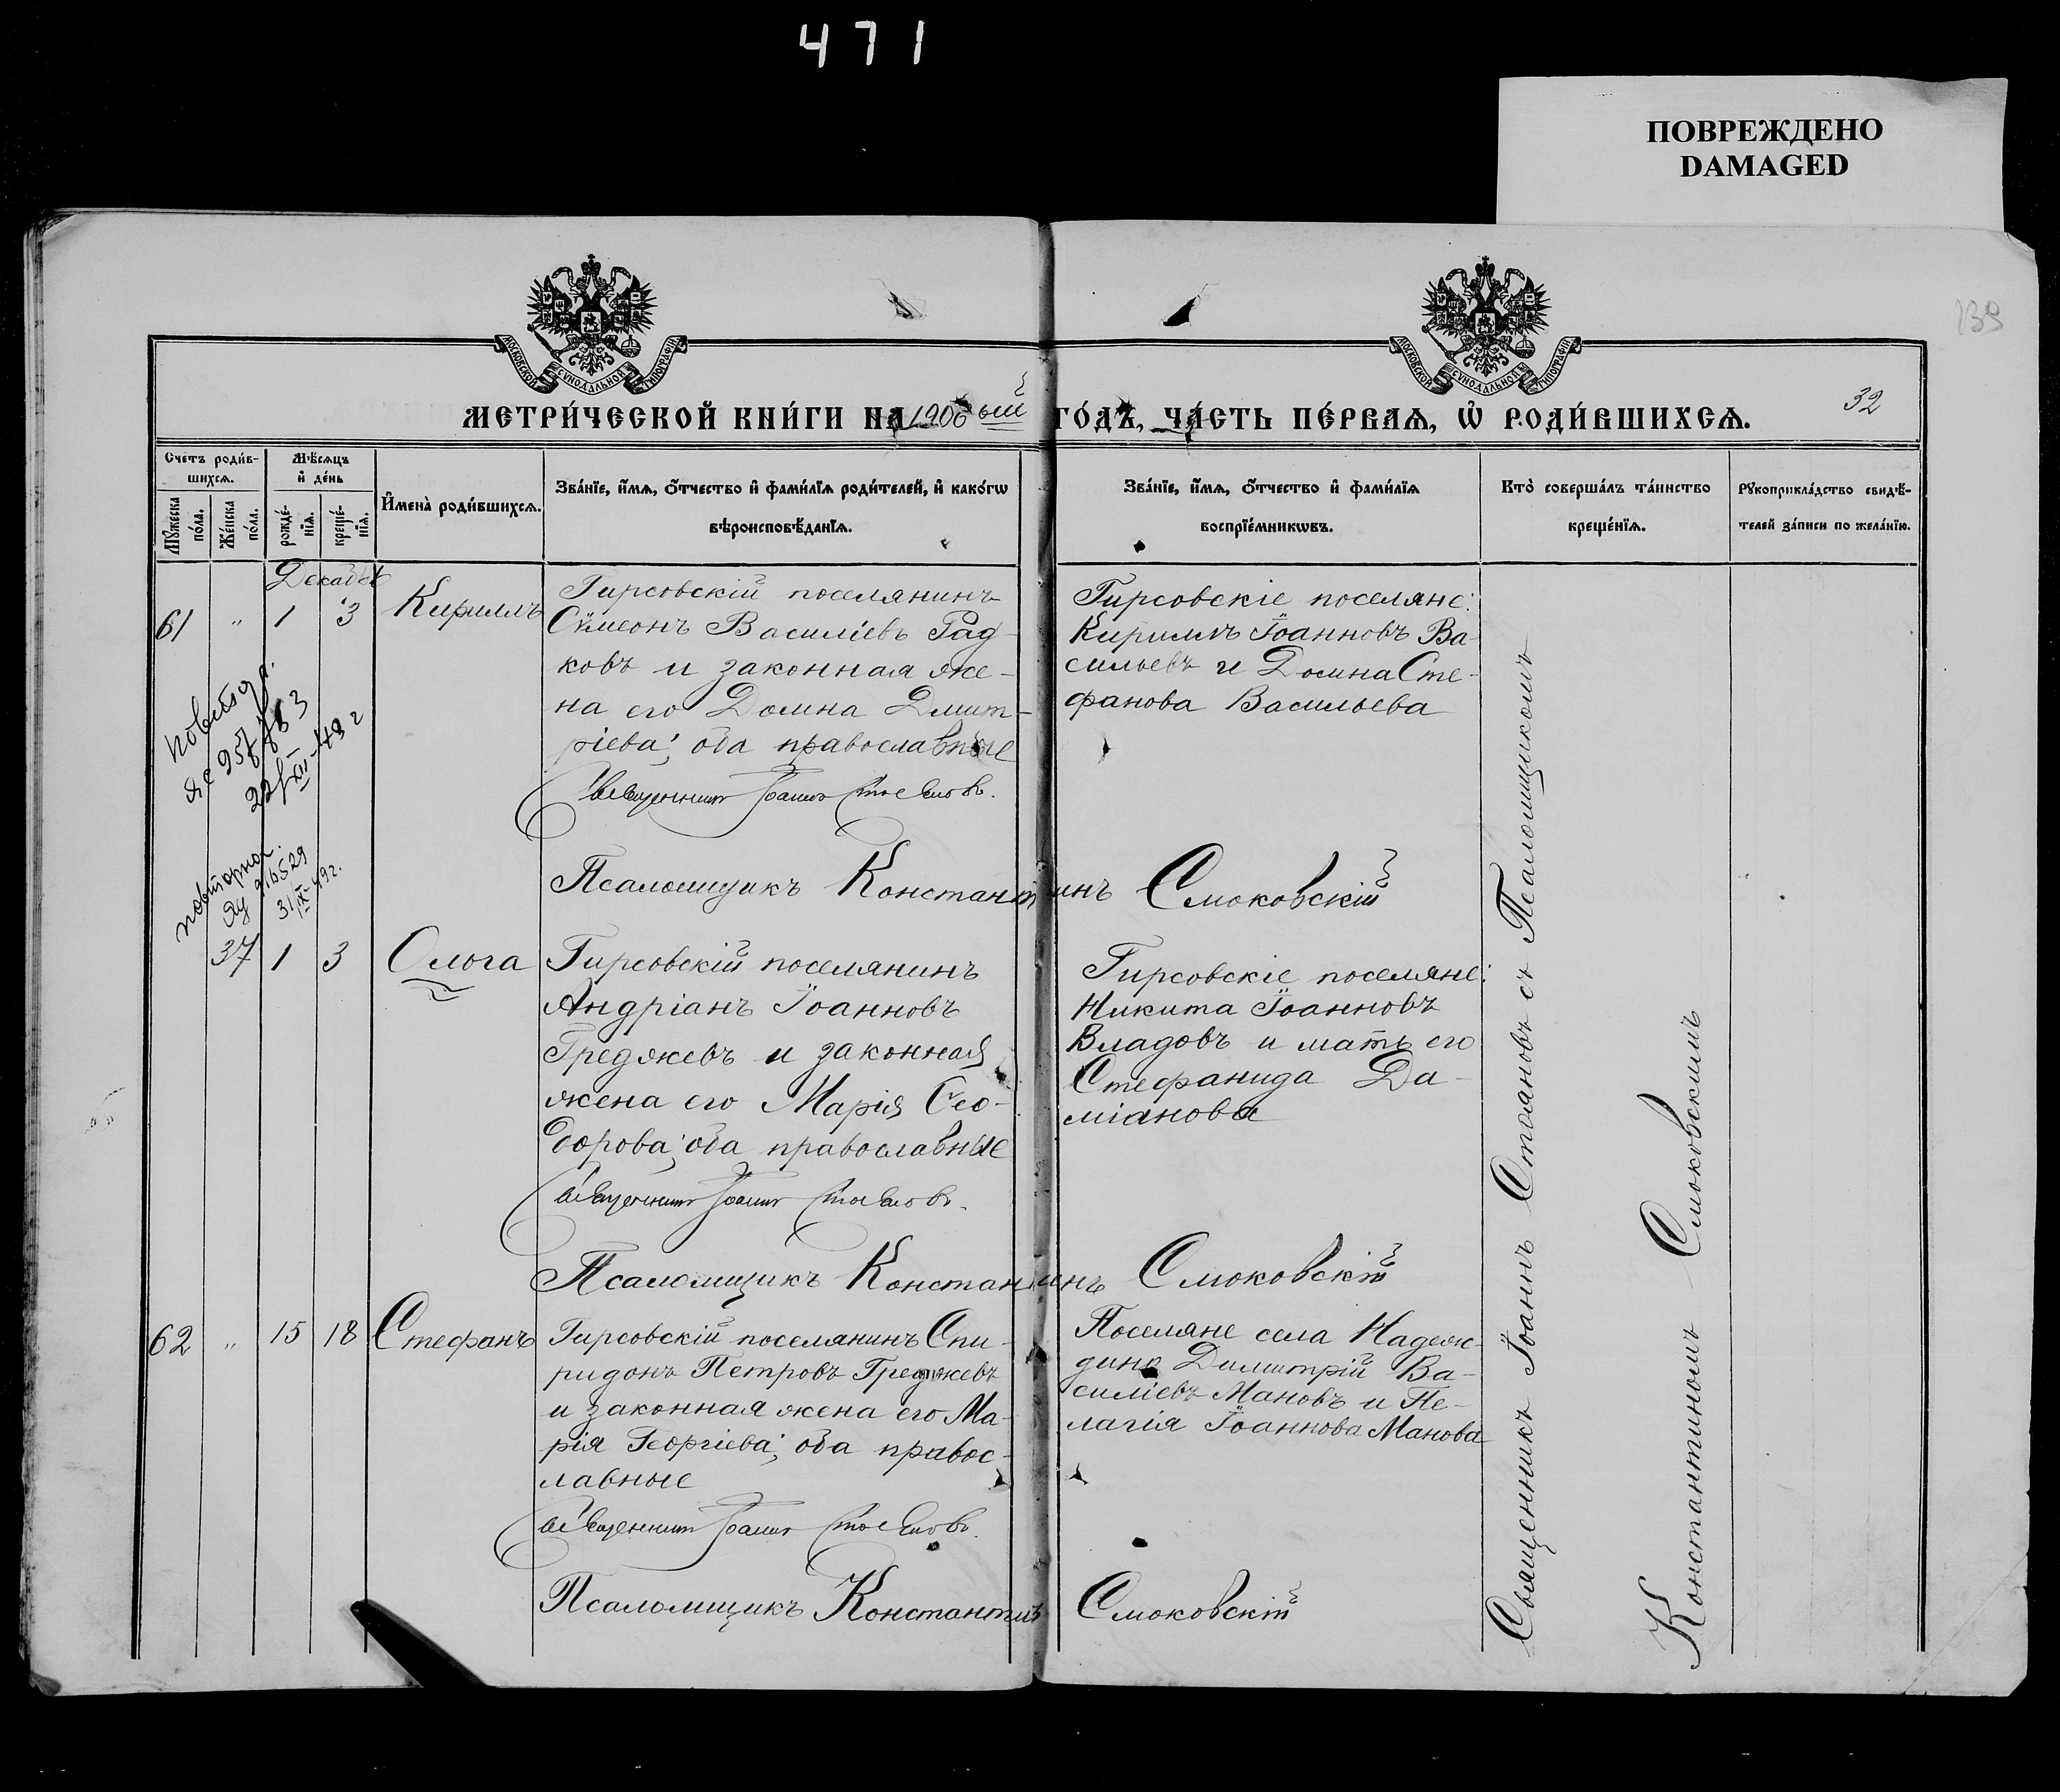 471
ПОВРЕЖДЕНО
DAMAGED
МОСКОВСКОЙ СѴНОДАЛЬНОЙ ТИПОГРАФІИ
МОСКОВСКОЙ СѴНОДАЛЬНОЙ ТИПОГРАФІИ
139
32
МЕТРИ́ЧЕСКОЙ КНИ́ГИ НА 1906 ый ГО́ДЪ, ЧА́СТЬ ПЕ́РВАЯ, Ѽ РОДИ́ВШИХСЯ.
Сче́тъ роди́в-
шихся.
Мꙋ́жеска
по́ла.
Же́нска
по́ла.
Мѣ́сяцъ
и҆ де́нь
рожде́-
нїя.
креще́-
нїя.
И҆мена̀ роди́вшихся.
Зва́нїе, и҆́мя, ѻ҆́тчество и҆ фами́лїя роди́телей, и҆ како́гѡ
вѣроисповѣ́данїя.
Зва́нїе, и҆́мя, ѻ҆́тчество и҆ фами́лїя
воспрїе́мникѡвъ.
Кто̀ соверша́лъ та́инство
креще́нїя.
Рꙋкоприкла́дство свидѣ́-
телей за́писи по жела́нїю.
61 " 1 3 Кириллъ
Гирсовскій поселянинъ
Сѵмеонъ Василіевъ Рад-
ковъ и законная же-
на его Домна Дмит-
ріева; оба православные
Священникъ Іоаннъ Стояновъ.
Псаломщикъ Константинъ Смоковскій
Гирсовскіе поселяне:
Кириллъ Іоанновъ Ва-
сильевъ и Домна Сте-
фанова Васильева
22/XII-49 г
повторное
31/IX-49г.
37 1 3 Ольга
Гирсовскій поселянинъ
Андріанъ Іоанновъ
Греджевъ и законная
жена его Марія Ѳео-
дорова; оба православные
Священникъ Іоаннъ Стояновъ.
Псаломщикъ Константинъ Смоковскій
Гирсовскіе поселяне:
Никита Іоанновъ
Владовъ и мать его
Стефанида Да-
міанова
62 " 15 18 Стефанъ
Гирсовскій поселянинъ Спи-
ридонъ Петровъ Греджевъ
и законная жена его Ма-
рія Георгіева; оба правос-
лавные
Священникъ Іоаннъ Стояновъ.
Псаломщикъ Константинъ Смоковскій
Поселяне села Надеж-
дино Димитрій Ва-
силіевъ Мановъ и Пе-
лагія Іоаннова Манова
Священникъ Іоаннъ Стояновъ съ Псаломщикомъ
Константиномъ Смоковскимъ